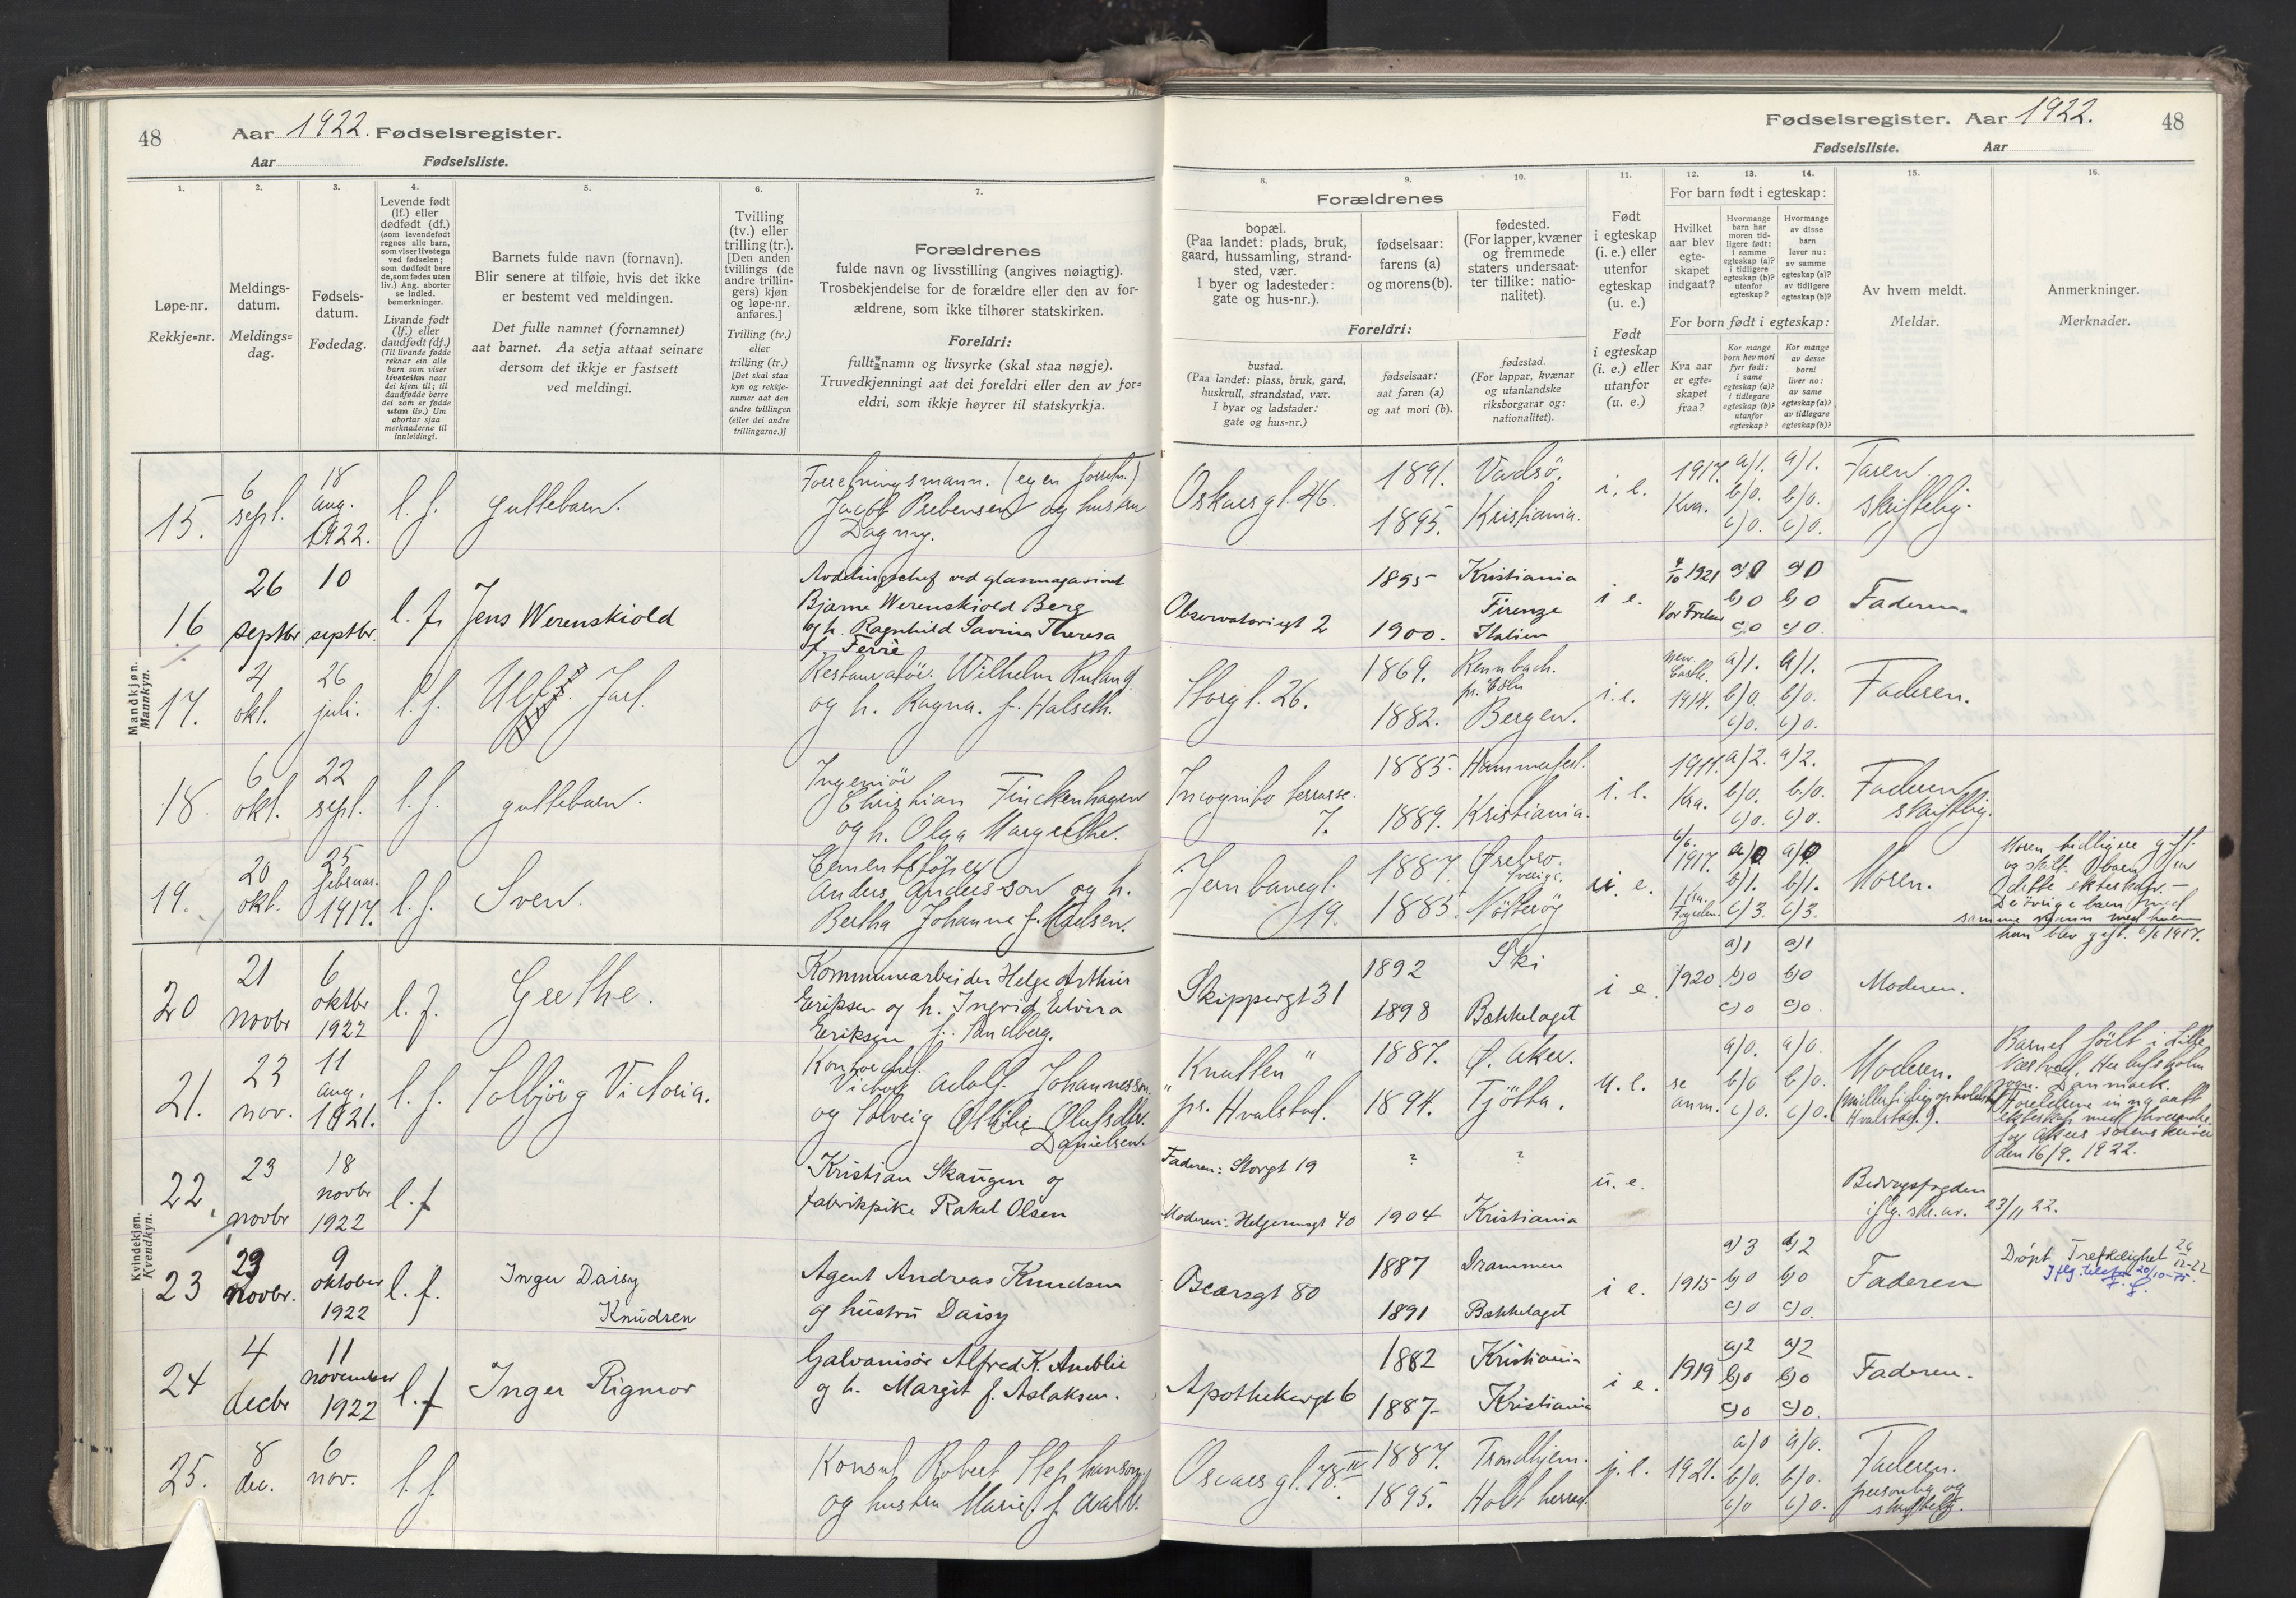 48
Aar 1922. Fødselsregister.
Aar Fødselsliste.
1.
Løpe-nr.
Rekkje=nr.
2.
Meldings-
datum.
Meldings=
dag.
3.
Fødsels-
datum.
Fødedag.
4.
Levende født
(lf.) eller
dødfødt (df.)
(som levendefødt
regnes alle barn,
som viser livstegn
ved fødselen;
som dødfødt bare
de, som fødes uten
liv.) Ang. aborter
se indled.
bemerkninger.
Livande født
(lf.) eller
daudfødt (df.)
(Til livande fødde
reknar ein alle
barn som viser
livsteikn naar
dei kjem til; til
daudfødde berre
dei som er fødde
utan liv.) Um
abortar sjaa
merknaderne til
innleidingi.
5.
Barnets fulde navn (fornavn).
Blir senere at tilføie, hvis det ikke
er bestemt ved meldingen.
Det fulle namnet (fornamnet)
aat barnet. Aa setja attaat seinare
dersom det ikkje er fastsett
ved meldingi.
6.
Tvilling
(tv.) eller
trilling (tr.).
[Den anden
tvillings (de
andre trillin-
gers) kjøn
og løpe-nr.
anføres.]
Tvilling (tv.)
eller
trilling (tr.)
[Det skal staa
kyn og rekkje-
numer aat den
andre tvillingen
(eller dei andre
trillingarne.)]
7.
Forældrenes
fulde navn og livsstilling (angives nøiagtig).
Trosbekjendelse for de forældre eller den av for-
ældrene, som ikke tilhører statskirken.
Foreldri:
fullt=namn og livsyrke (skal staa nøgje).
Truvedkjenningi aat dei foreldri eller den av for=
eldri, som ikkje høyrer til statskyrkja.
Mandkjøn.
Mannkyn.
15. 6 sept. 18 aug. 1922. l. f. guttebarn.
Forretningsmann. (egen forretn.)
Jacob Prebensen og hustru
Dagny.
16 26 septbr 10 septbr. l. f. Jens Werenskiold
Avdelingschef ved glasmagasinet
Bjarne Werenskiold Berg
og h. Ragnhild Savina Theresa
f. Ferrè
17. 4 okt. 26 juli. l. f. Ulf. Jarl.
Restauratør. Wilhelm Ruland
og h. Ragna. f. Halseth.
18. 6 okt. 22 sept. l. f. guttebarn.
Ingeniör
Christian Finckenhagen
og h. Olga Margrethe.
19. 20 okt. 25 februar. 1917. l. f. Sven.
Cementstøper
Anders Andersson og h.
Bertha Johanne f. Madsen.
Kvindekjøn.
Kvendkyn.
20 21 novbr 6 oktbr 1922 l. f. Grethe.
Kommunearbeider Helge Arthur
Eriksen og h. Ingrid Elvira
Eriksen f. Sandberg.
21. 23 nov. 11 aug. 1921. l. f. Solbjörg Victoria.
Victor Adolf Johannesson
og Solveig Ottilie Olufsdtr.
Danielsen.
22. 23 novbr 18 novbr 1922 l. f
Kristian Skaugen og
fabrikpike Rakel Olsen
23 23 novbr. 9 oktober 1922 l. f. Inger Daisy
Knudsen
Agent Andreas Knudsen
og hustru Daisy
24 4 decbr 11 november 1922 l. f Inger Rigmor
Galvanisør Alfred K. Amblie
og h. Margit f. Aslaksen.
25. 8 dec. 6 nov. l. f.
Konsul Robert Stephanson
og hustru Marie f. Aall.
Fødselsregister. Aar 1922.
48
Fødselsliste. Aar
8.
Forældrenes
bopæl.
(Paa landet: plads, bruk,
gaard, hussamling, strand-
sted, vær.
I byer og ladesteder:
gate og hus-nr.).
Foreldri:
bustad.
(Paa landet: plass, bruk, gard,
huskrull, strandstad, vær.
I byar og ladstader:
gate og hus=nr.)
9.
fødselsaar:
farens (a)
og morens (b).
fødselsaar:
aat faren (a)
og aat mori (b).
10.
fødested.
(For lapper, kvæner
og fremmede
staters undersaat-
ter tillike: natio-
nalitet).
fødestad.
(For lappar, kvænar
og utanlandske
riksborgarar og:
nationalitet).
11.
Født
i egteskap
(i. e.) eller
utenfor
egteskap
(u. e.)
Født
i egteskap
(i. e.) eller
utanfor
(u. e.)
12.
For barn født i egteskap:
Hvilket
aar blev
egte-
skapet
indgaat?
For born født i egteskap:
Kva aar
er egte=
skapet
fraa?
13.
Hvormange
barn har
moren tid-
ligere født:
i samme
egteskap (a)?
i tidligere
egteskap (b)?
utenfor
egteskap?
Kor mange
born hev mori
fyrr født:
i same
egteskap (a)?
i tidlegare
egteskap (b)?
utanfor
egteskap?
14.
Hvormange
av disse
barn
lever nu:
av samme
egteskap (a)?
av tidligere
egteskap (b)?
Kor mange
av desse
borni
liver no:
av same
egteskap (a)?
av tidlegare
egteskap (b)?
15.
Av hvem meldt.
Meldar.
16.
Anmerkninger.
Merknader.
Oskars gt. 46. 1891. Vadsö. i. e. 1917. a)1. a)1. Faren
1895. Kristiania. Kra. b)0. b)0. skriftelig.
c)0. c)0.
Observatoriegt 2 1895 Kristiania i e. 1921 a)0 a)0 Faderen
Firenze Vor Frelser b)0 b)0
1900. Italien c)0 c)0
Storgt. 26. 1869. Rennbach. pr. Cöln i. e. New. Castle. a)1. a)1. Faderen.
1882. Bergen. 1914. b)0. b)0.
c)0. c)0.
Incognito terrasse 7. 1885. Hammerfest. i. e. 1911. a)2. a)2. Faderen
1889. Kristiania. Kra. b)0. b)0. skriftlig.
c)0. c)0.
Jernbanegt. 19. 1887. Örebro. Sverige. e. 6/6. 1917. a)0 a)0 Moren.
1885. Nötteröy Kra. b)1. b)1.
c)3. c)3.
Moren tidligere gift
og skilt. 1 barn fra
dette ekteskap.
De övrige barn med
samme mann med hvem
hun blev gift. 6/6 1917.
Skippergt 31 1892 Ski i e. 1920. a)1 a)1 Moderen.
1898 Bækkelaget b)0 b)0
c)0 c)0
Knatten 1887. Ö. Aker. u. e. se anm. a)0. a)0. Moderen.
pr. Hvalstad. 1894. Tjötta. b)0 b)0. (midlertidig opholdssted
c)0. c)0. Hvalstad.).
Barnet födt i Lille
Næstved, Herlufsholm
sogn. Danmark.
Foreldrene inngaatt
ekteskap med hverandre
for Akers sorenskriver
den 16/9. 1922.
Faderen: Storgt 19 ? ? u. e. Bidragsfogden
Moderen: Helgesensgt 40 1904 Kristiania iflg. skr. av. 23/11 22.
Oscarsgt 80 1887 Drammen i e. 1915 a)3 a)2 Faderen
1891 Bækkelaget b)0 b)0
c)0 c)0.
Döpt Trefoldighet 26/12-22
Iflg. 20/10-75.
Apothekergt 6 1882 Kristiania i e. 1919 a)2 a)2 Faderen.
1887 Kristiania b)0 b)0
c)0 c)0.
Oscars gt. 78. IV 1887. Trondhjem. i. e. 1921. a)0 a)0. Faderen.
1895. Holt herred. b)0. b)0. personlig og
c)0 c)0. skriftelig.